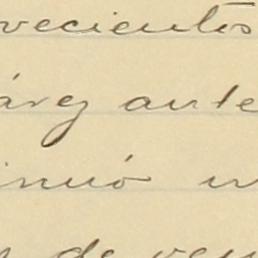 vecientos
árez ante
inuó
de